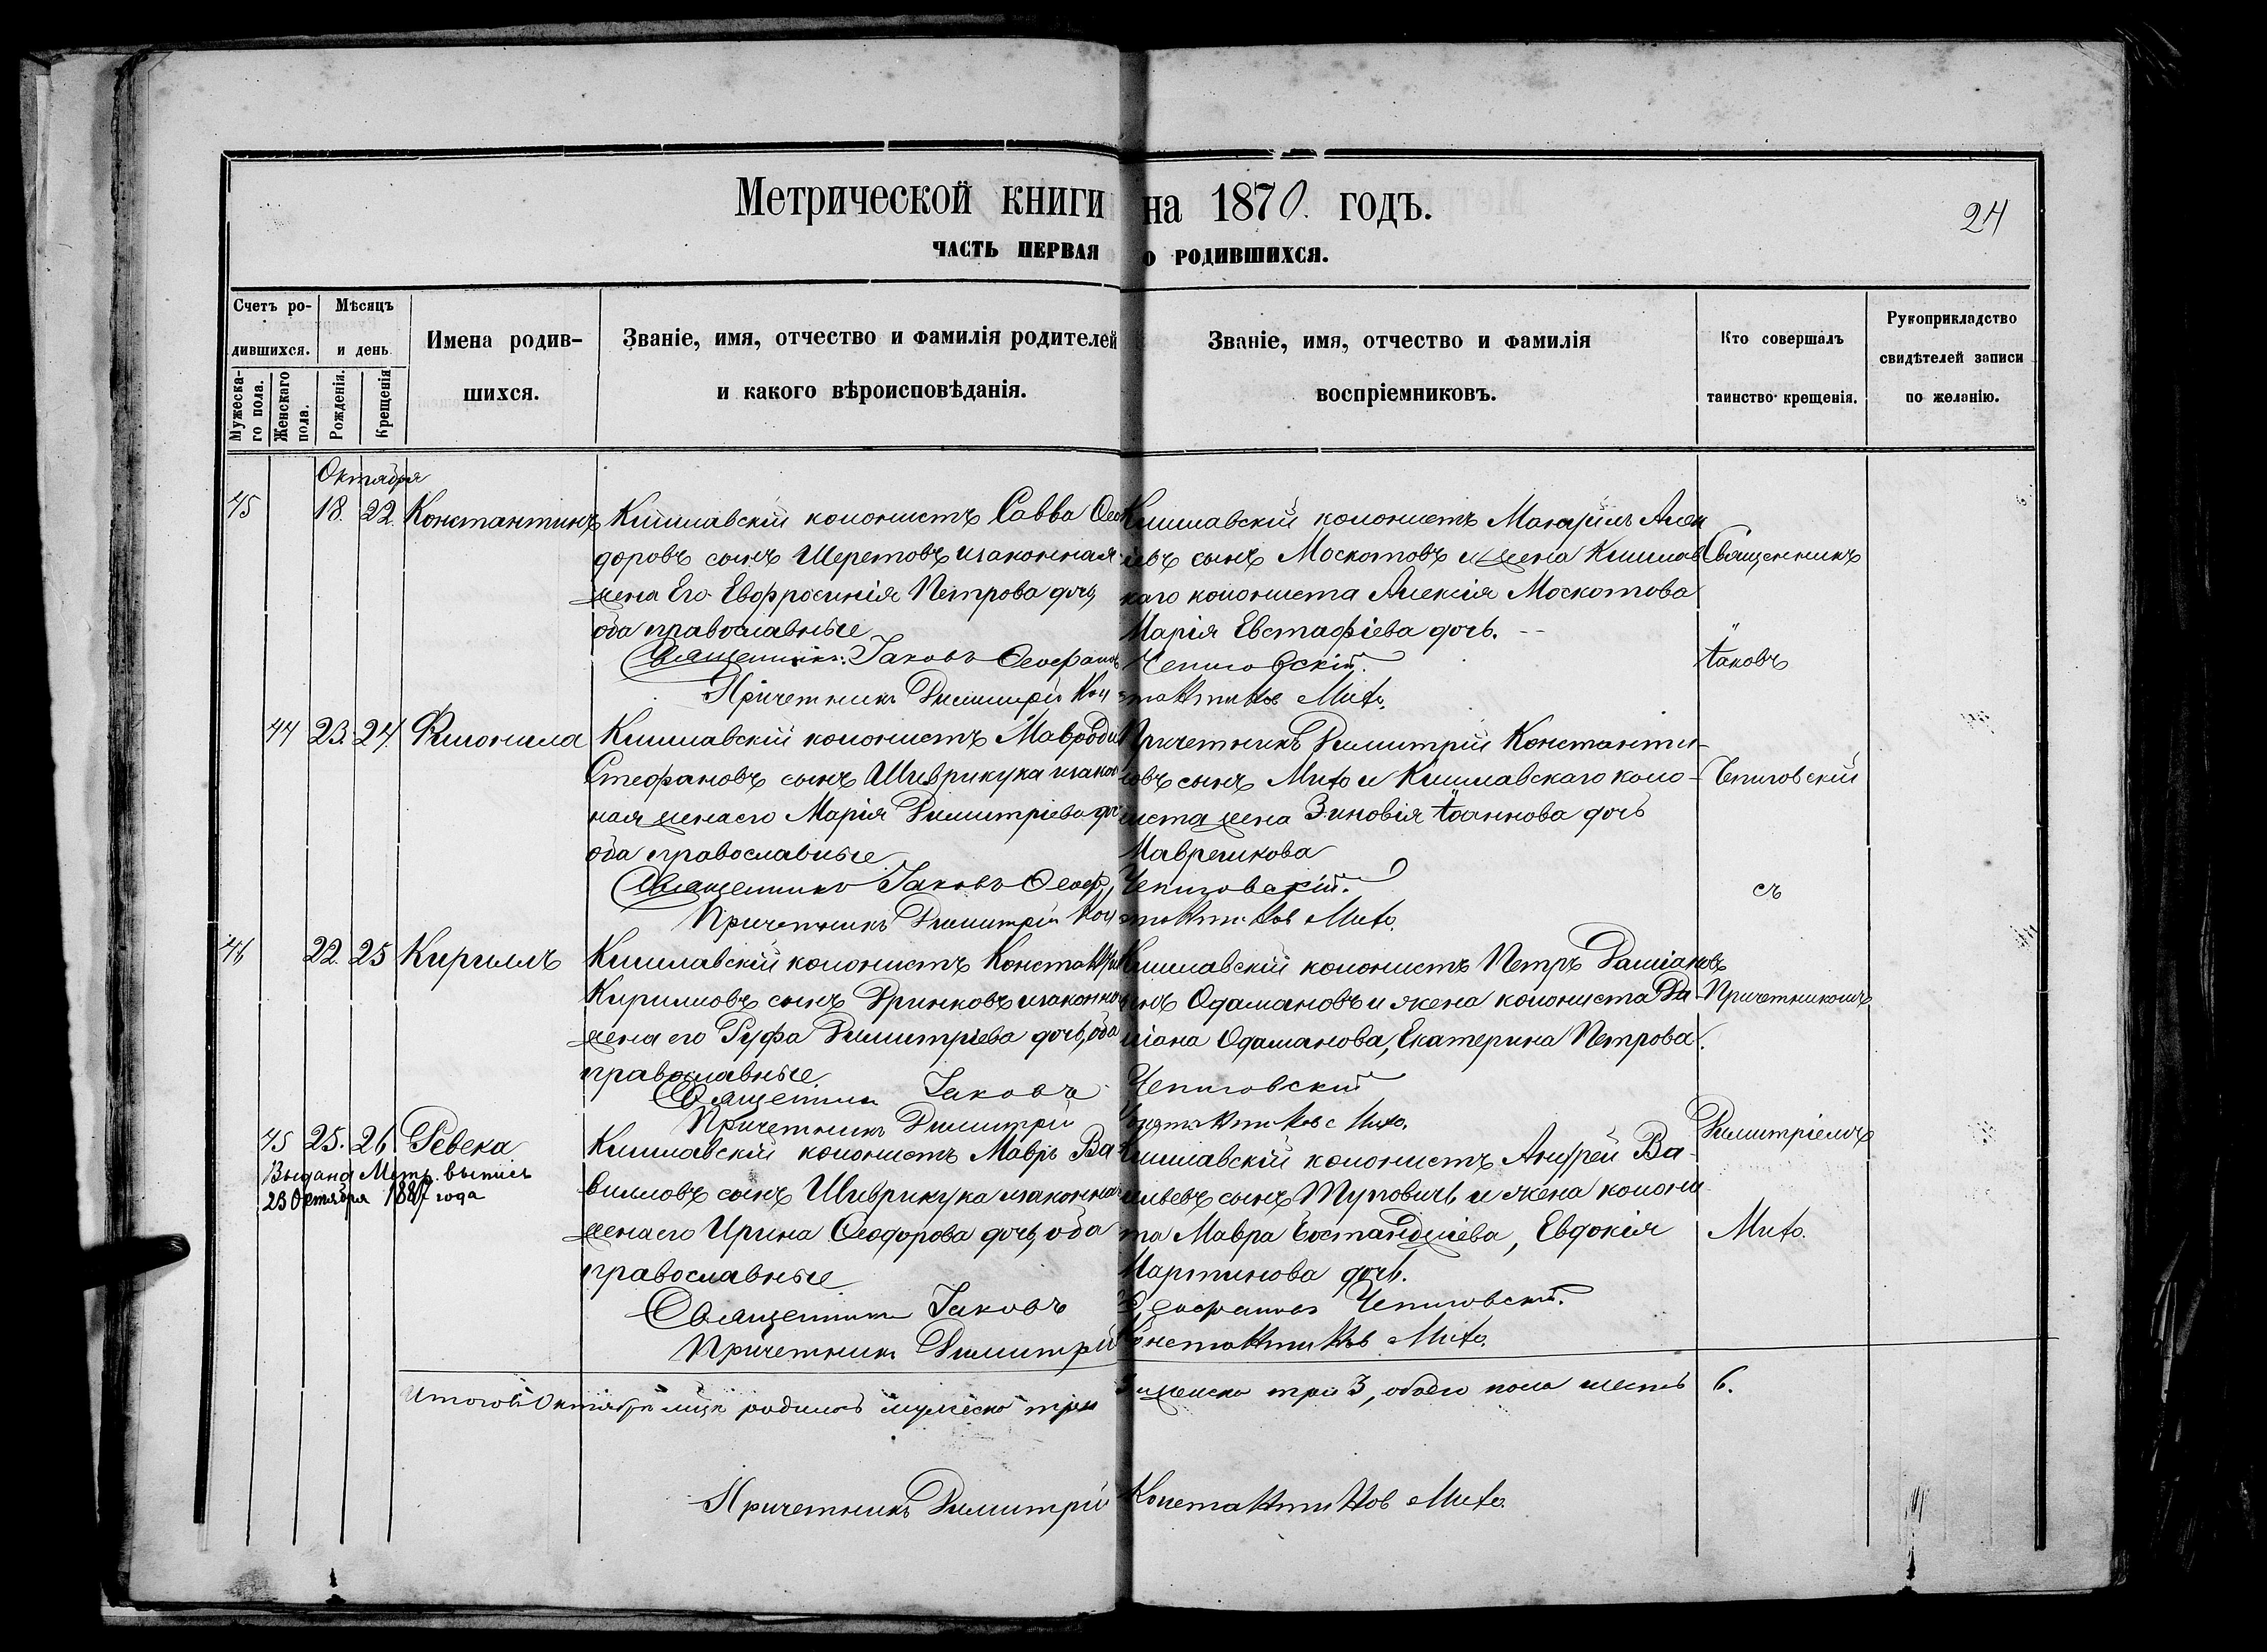 Метрической книги на 1870. годъ.
24
ЧАСТЬ ПЕРВАЯ о РОДИВШИХСЯ.
Счетъ ро-
дившихся.
Мужеска-
го пола.
Женскаго
пола.
Мѣсяцъ
и день
Рожденія.
Крещенія
Имена родив-
шихся.
Званіе, имя, отчество и фамилія родителей
и какого вѣроисповѣданія.
Званіе, имя, отчество и фамилія
воспріемниковъ.
Кто совершалъ
таинство крещенія.
Рукоприкладство
свидѣтелей записи
по желанію.
Октября
45 18. 22. Константинъ
Кишлавскій колонистъ Савва Ѳео
доровъ сынъ Шеретовъ и законная
жена Его Евфросинія Петрова дочь,
оба православные
Священникъ Іаковъ Ѳеофановъ
Причетникъ Димитрій Кон
Кишлавскій колонистъ Алек
іевъ сынъ Москотовъ и жена Кишлав
каго колониста Алексія Москотова
Марія Евстафіева дочь.
Чепиговскій.
стантиновъ Мито.
44 23. 24. Филонила
Кишлавскій колонистъ Мавроди
Стефановъ сынъ Шиврикука и закон
ная жена его Марія Димитріева до
оба православные
Священникъ Іаковъ Ѳеоф
Причетникъ Димитрій Кон
Причетникъ Димитрій Константи-
новъ сынъ Мито и Кишлавскаго коло-
ниста жена Зиновія Іоаннова дочь
Чепиговскій.
стантиновъ Мито.
46 22. 25 Кириллъ
Кишлавскій колонистъ Константинъ
Кирилловъ сынъ Дринковъ и законна
жена его Руфа Димитріева дочь, оба
православные
Священникъ Іаковъ
Причетникъ Димитрій
Кишлавскій колонистъ Петръ Даміановъ
сынъ Одамановъ и жена колониста Да
міана Одаманова, Екатерина Петрова.
Чепиговскій
Константиновъ Мито.
45 25. 26 Ревека
Выдана Метр. выпись
23 Октября 1887 года
Кишлавскій колонистъ Мавръ Ва
вилловъ сынъ Шиврикука и законна
жена его Ирина Ѳеодорова дочь, оба
православные
Священникъ Іаковъ
Причетникъ Димитрій
Кишлавскій колонистъ Андрей Ва-
сильевъ сынъ и жена колони
та Мавра Бостанджіева, Евдокія
Мартинова дочь.
Ѳеофановъ Чепиговскій.
Константиновъ Мито.
Священникъ
Іаковъ
Чепиговскій
съ
Причетникомъ
Димитріемъ
Мито.
Итого въ Октябрѣ м-цѣ родилось мужеско три
3 и женско три 3, обоего пола шесть 6.
Причетникъ Димитрій Константиновъ Мито.